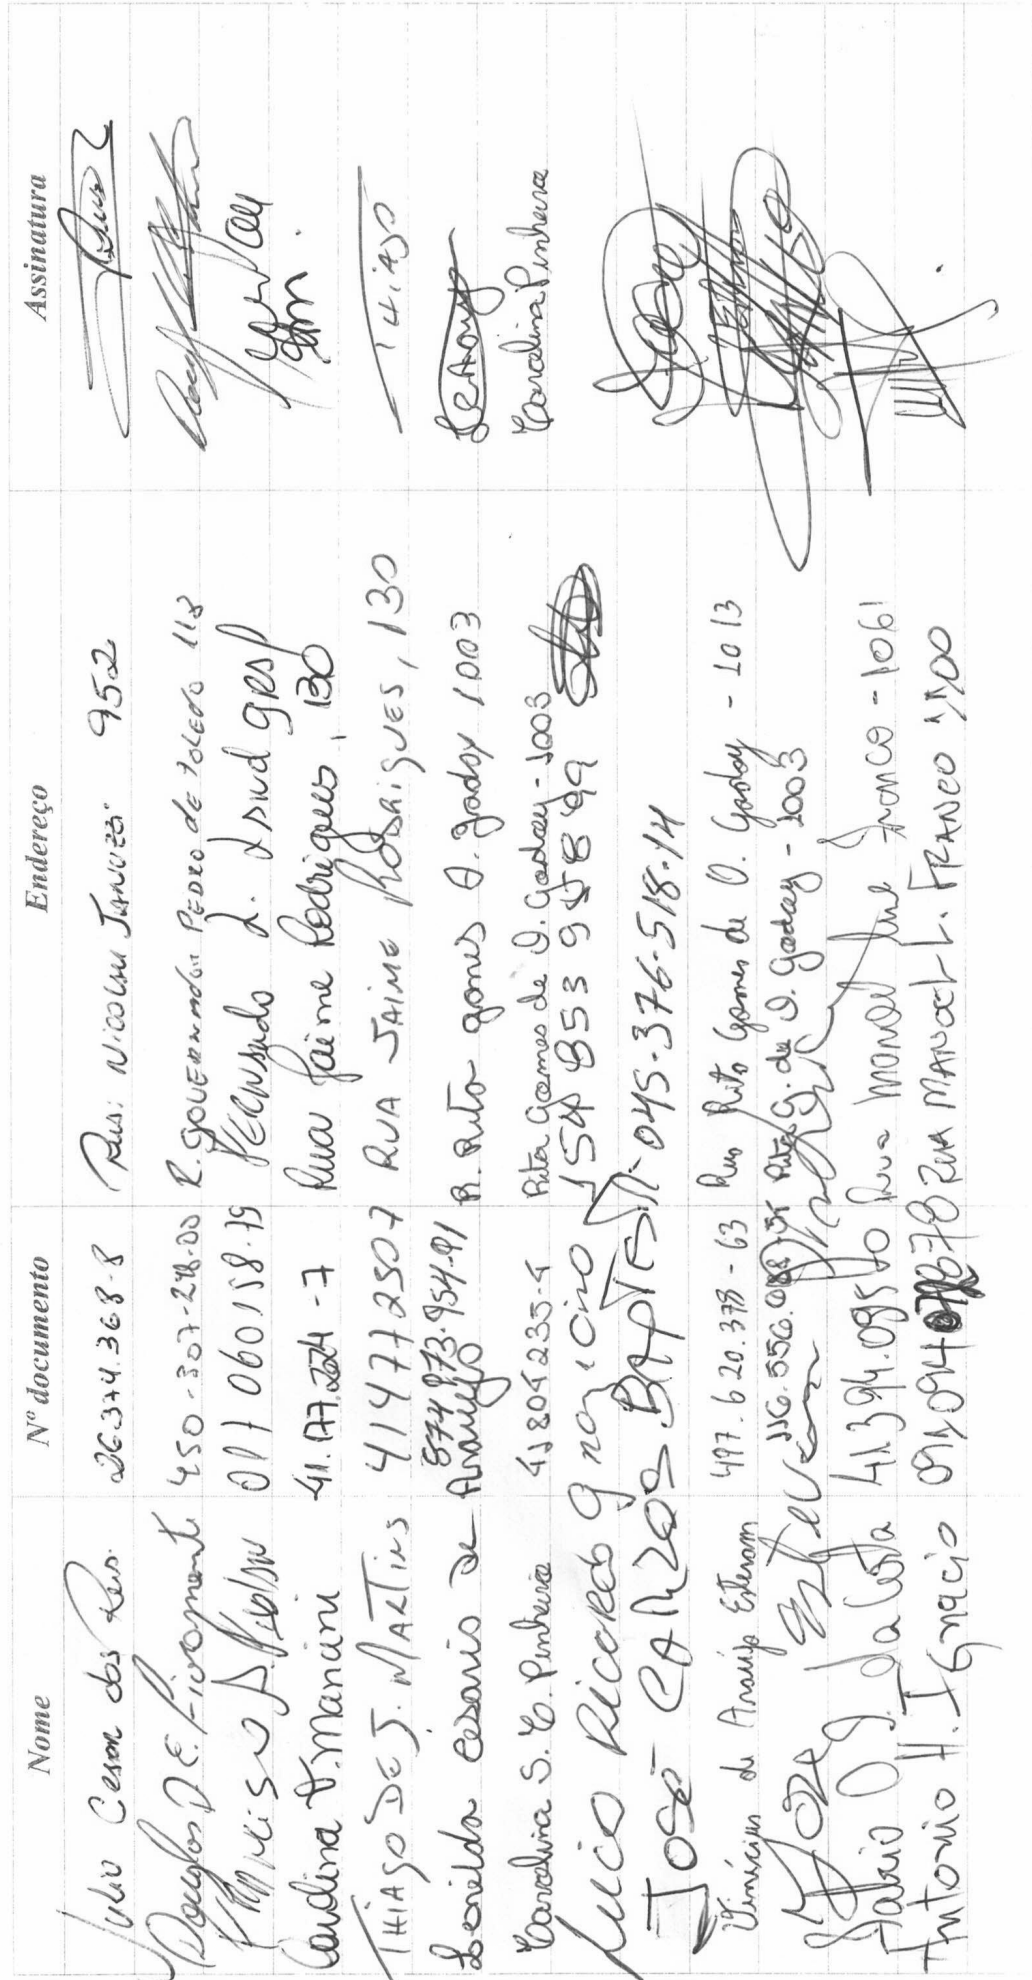 Nome Nº documento Endereço Assinatura
Julio Cesar dos Reis. 26.374.368-8 Rua: Nicolau Januzzi 952
Douglas D. E. Fioromente 450-307-218-00 R. GOVERNADOR PEDRO de TOLEDO 118
017 060158-79
Carolina V. Mancini 41.177.224-7 Rua Jaime Rodrigues, 130
THIAGO DE J. MARTINS 414772507 RUA JAIME RODRIGUES, 130 THIAGO
Lenilda Cesario de Araujo 874 973.954-91 R. Rita gomes O. godoy 1003
Carolina S. C. Pinheiro 41804235-4 Rita Gomes de O. Godoy - 1003 Carolina Pinheiro
Lucio Ricardo Ignacio 154 853 958 99
JOSÉ CARLOS BAPTISTA 045-376-518-14
Vinicius de Araujo Estevam 497.620.378-63 Rua Rita Gomes de O. Godoy - 1013
Jose Estevam Rita G. de O. Godoy - 1003
Fabio O J. da Costa 41.394.095 Rua Manoel Franco - 1061
Antonio H. Ignacio RUA MANOEL L. FRANCO 1100